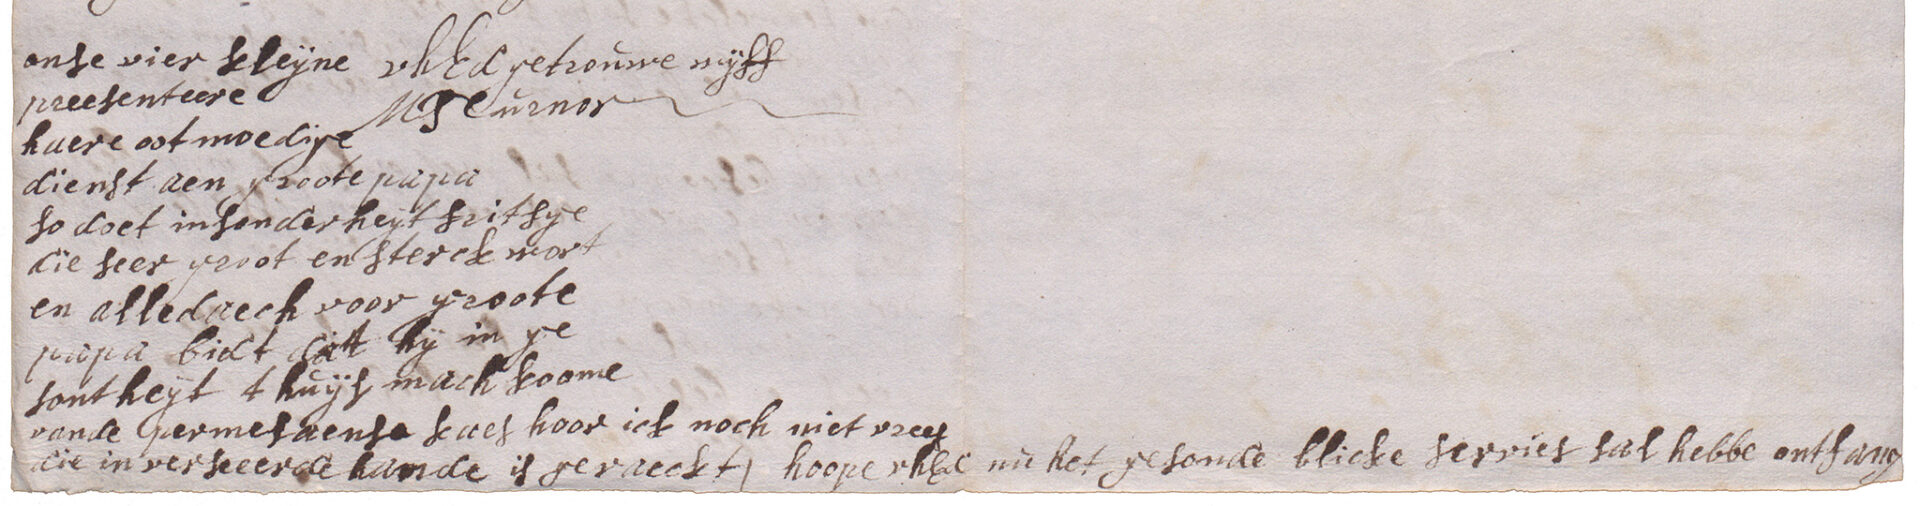 onse vier kleijne
preesenteere
haere ootmoedige
dienst aen groote papa
so doet insonderheijt fritsge
die seer groot en sterck wort
en alledaech voor groote
papa bidt datt hij in ge
sontheijt t huijs mach koome
vande permesaense kaes hoor ick noch niet vrees
die in verkeerde hande is geraeckt / hoope uhEd nu het gesonde blicke servies sal hebbe ontfang
uhEd getrouwe wijff
M Teurnor